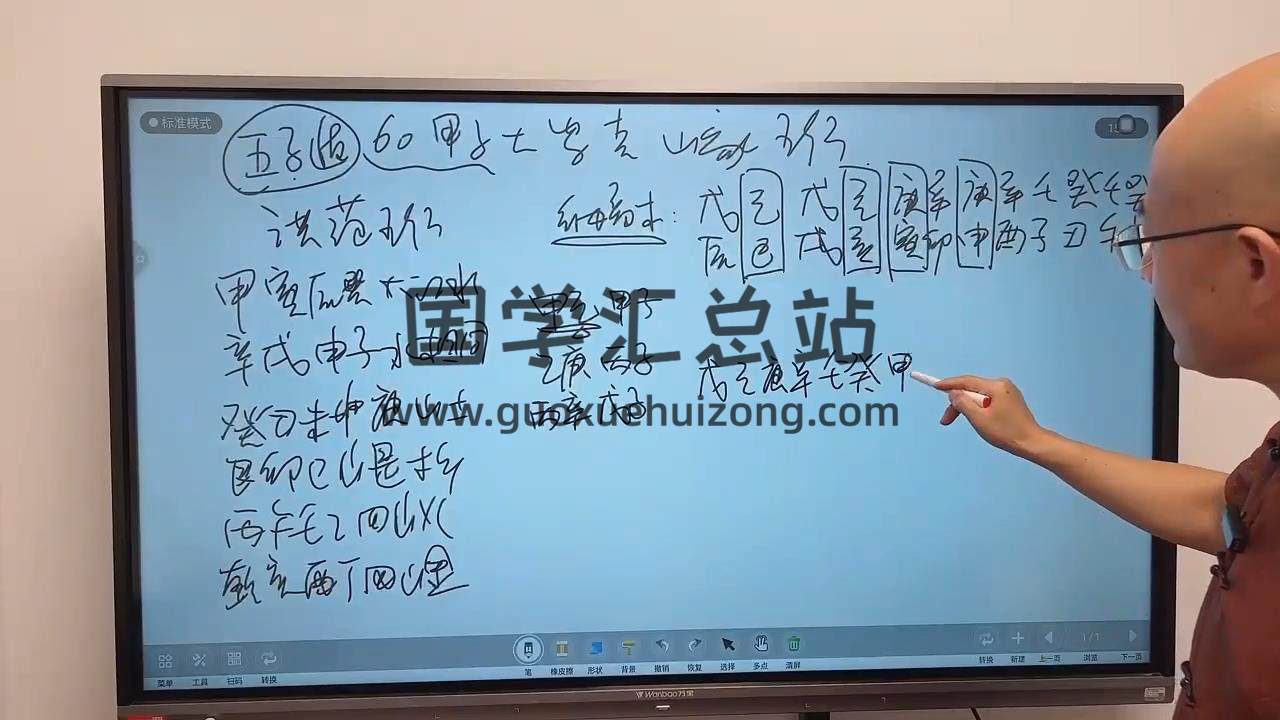 标准模式
60甲子
洪范五行
戊己戊己庚辛庚辛壬癸壬癸
辰巳戌亥寅卯申酉子丑午
甲寅辰巽大江水
辛戌申子水
癸丑未坤庚山土
艮卯巳山是木
丙午壬乙四山火
乾亥酉丁四山金
甲己甲子
乙庚丙子
丙辛戊子
戊己庚辛壬癸甲
国学汇总站
www.guoxuehuizong.com
菜单 工具 扫码 转换
笔 橡皮擦 形状 背景 撤销 恢复 选择 多点 清屏
转换 新建 上一页 浏览 下一页
1/1
Wanbao万宝